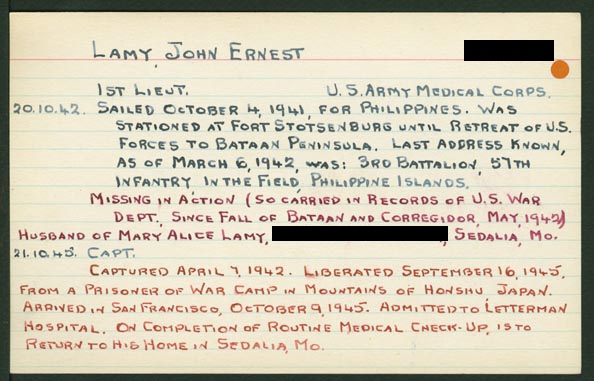 LAMY, JOHN ERNEST
1ST LIEUT. U.S. ARMY MEDICAL CORPS.
20.10.42. SAILED OCTOBER 4, 1941, FOR PHILIPPINES. WAS
STATIONED AT FORT STOTSENBURG UNTIL RETREAT OF U.S.
FORCES TO BATAAN PENINSULA. LAST ADDRESS KNOWN,
AS OF MARCH 6, 1942, WAS: 3RD BATTALION, 57TH
INFANTRY, IN THE FIELD, PHILIPPINE ISLANDS.
MISSING IN ACTION (SO CARRIED IN RECORDS OF U.S. WAR
DEPT., SINCE FALL OF BATAAN AND CORREGIDOR, MAY, 1942)
HUSBAND OF MARY ALICE LAMY, SEDALIA, MO.
21.10.45. CAPT.
CAPTURED APRIL 7, 1942. LIBERATED SEPTEMBER 16, 1945,
FROM A PRISONER OF WAR CAMP IN MOUNTAINS OF HONSHU JAPAN.
ARRIVED IN SAN FRANCISCO, OCTOBER 9, 1945. ADMITTED TO LETTERMAN
HOSPITAL. ON COMPLETION OF ROUTINE MEDICAL CHECK-UP, IS TO
RETURN TO HIS HOME IN SEDALIA, MO.